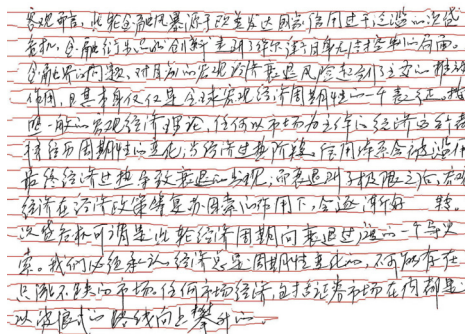 客观而言，此轮金融风暴源于欧美发达国家信用过于泛滥的次贷
危机，金融衍生品的创新走到了详尽诠释且毫无节制的局面。
金融界的问题，对目前的宏观经济衰退风险起到了主要的推动
作用，但其本身仅仅是全球宏观经济周期性的一个表征。按
照一般的宏观经济理论，任何以市场为主体的经济运行都
将经历周期性的变化；当经济过热阶段，信用体系会被滥用
最终经济过热导致衰退的出现，而衰退到了极限之后，宏观
经济在经济政策等复苏因素的作用下，会逐渐好转。
次贷危机可谓是此轮经济周期向衰退过渡的一个导火
索。我们必须承认，经济总是周期性变化的，不可能存在
只涨不跌的市场。任何市场经济，包括证券市场在内都是
以波浪式的路线向上攀升的。